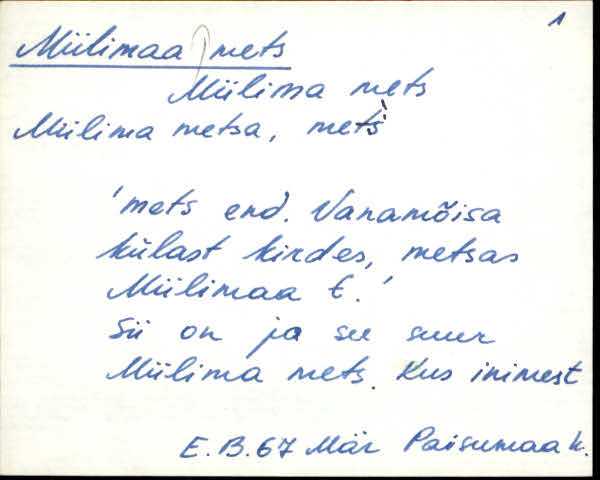 1
Miilimaa mets
Miilima mets
Miilima metsa, mets
'mets end. Vanamõisa
külast kirdes, metsas
Miilimaa t.'
Sii on ja see suur
Miilima mets. Kus inimest
E.B.67 Mär Paisumaa k.